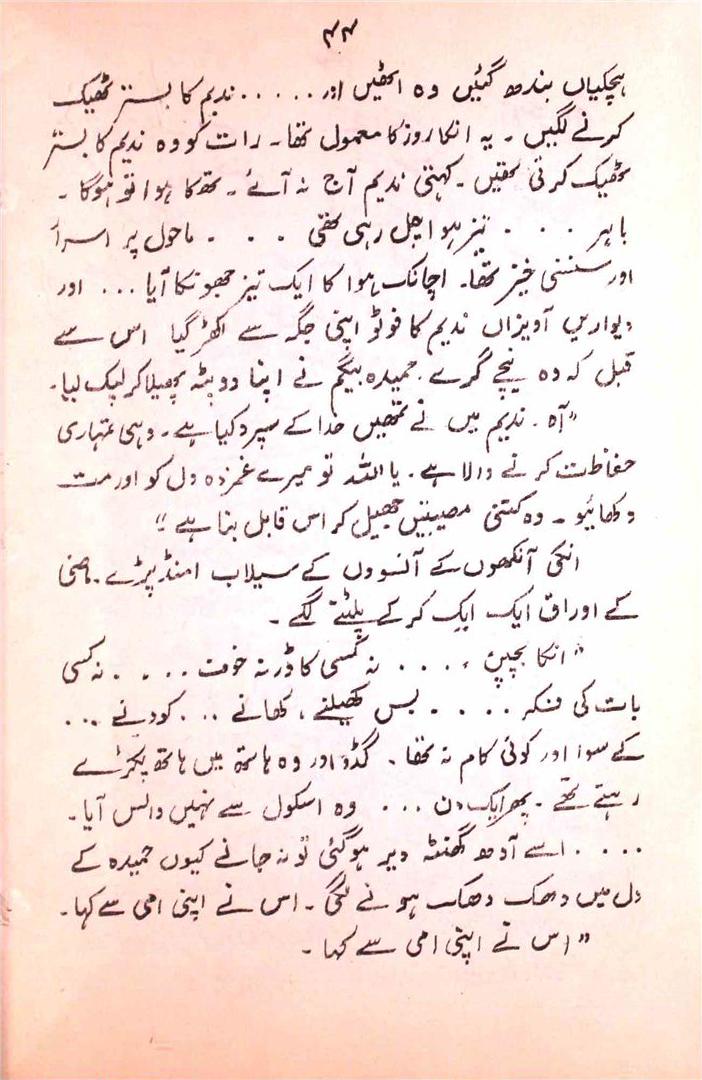 ۴۴
ہچکیاں بندھ گئیں وہ اٹھیں اور ..... ندیم کا بستر ٹھیک
کرنے لگیں ۔ یہ انکا روز کا معمول تھا۔ رات کو وہ ندیم کا بستر
ٹھیک کرتی تھیں ۔ کہتی ندیم آج نہ آئے ۔ تھکا ہوا تو ہوگا ۔
باہر ... تیز ہوا چل رہی تھی ... ۔ ماحول پر اسرار
اور سنسنی خیز تھا۔ اچانک ہوا کا ایک تیز جھونکا آیا ... اور
دیوار میں آویزاں ندیم کا فوٹو اپنی جگہ سے اکھڑ گیا اس سے
قبل کہ وہ نیچے گرے ۔ حمیدہ بیگم نے اپنا دوپٹہ پھیلا کر لپک لیا ۔
"آہ ۔ ندیم میں نے تمھیں خدا کے سپرد کیا ہے ۔ وہی تمہاری
حفاظت کرنے والا ہے ۔ یا اللہ تو میرے غمزدہ دل کو اور مت
دکھائیو ۔ وہ کتنی مصیبتیں جھیل کر اس قابل بنا ہے "
انکی آنکھوں کے آنسووں کے سیلاب امنڈ پڑے ۔ ماضی
کے اوراق ایک ایک کر کے پلٹنے لگے ۔
"انکا بچپن ، .... نہ کسی کا ڈر نہ خوف .... ۔ نہ کسی
بات کی فکر .... ۔ بس کھیلنے ، کھانے ... کودنے ...
کے سوا اور کوئی کام نہ تھا ۔ گڈو اور وہ ہاتھ میں ہاتھ پکڑے
رہتے تھے ۔ پھر ایک دن ... وہ اسکول سے نہیں واپس آیا ۔
.... اسے آدھ گھنٹہ دیر ہوگئی تو نہ جانے کیوں حمیدہ کے
دل میں دھک دھک ہونے لگی ۔ اس نے اپنی امی سے کہا ۔
"اس نے اپنی امی سے کہا ۔